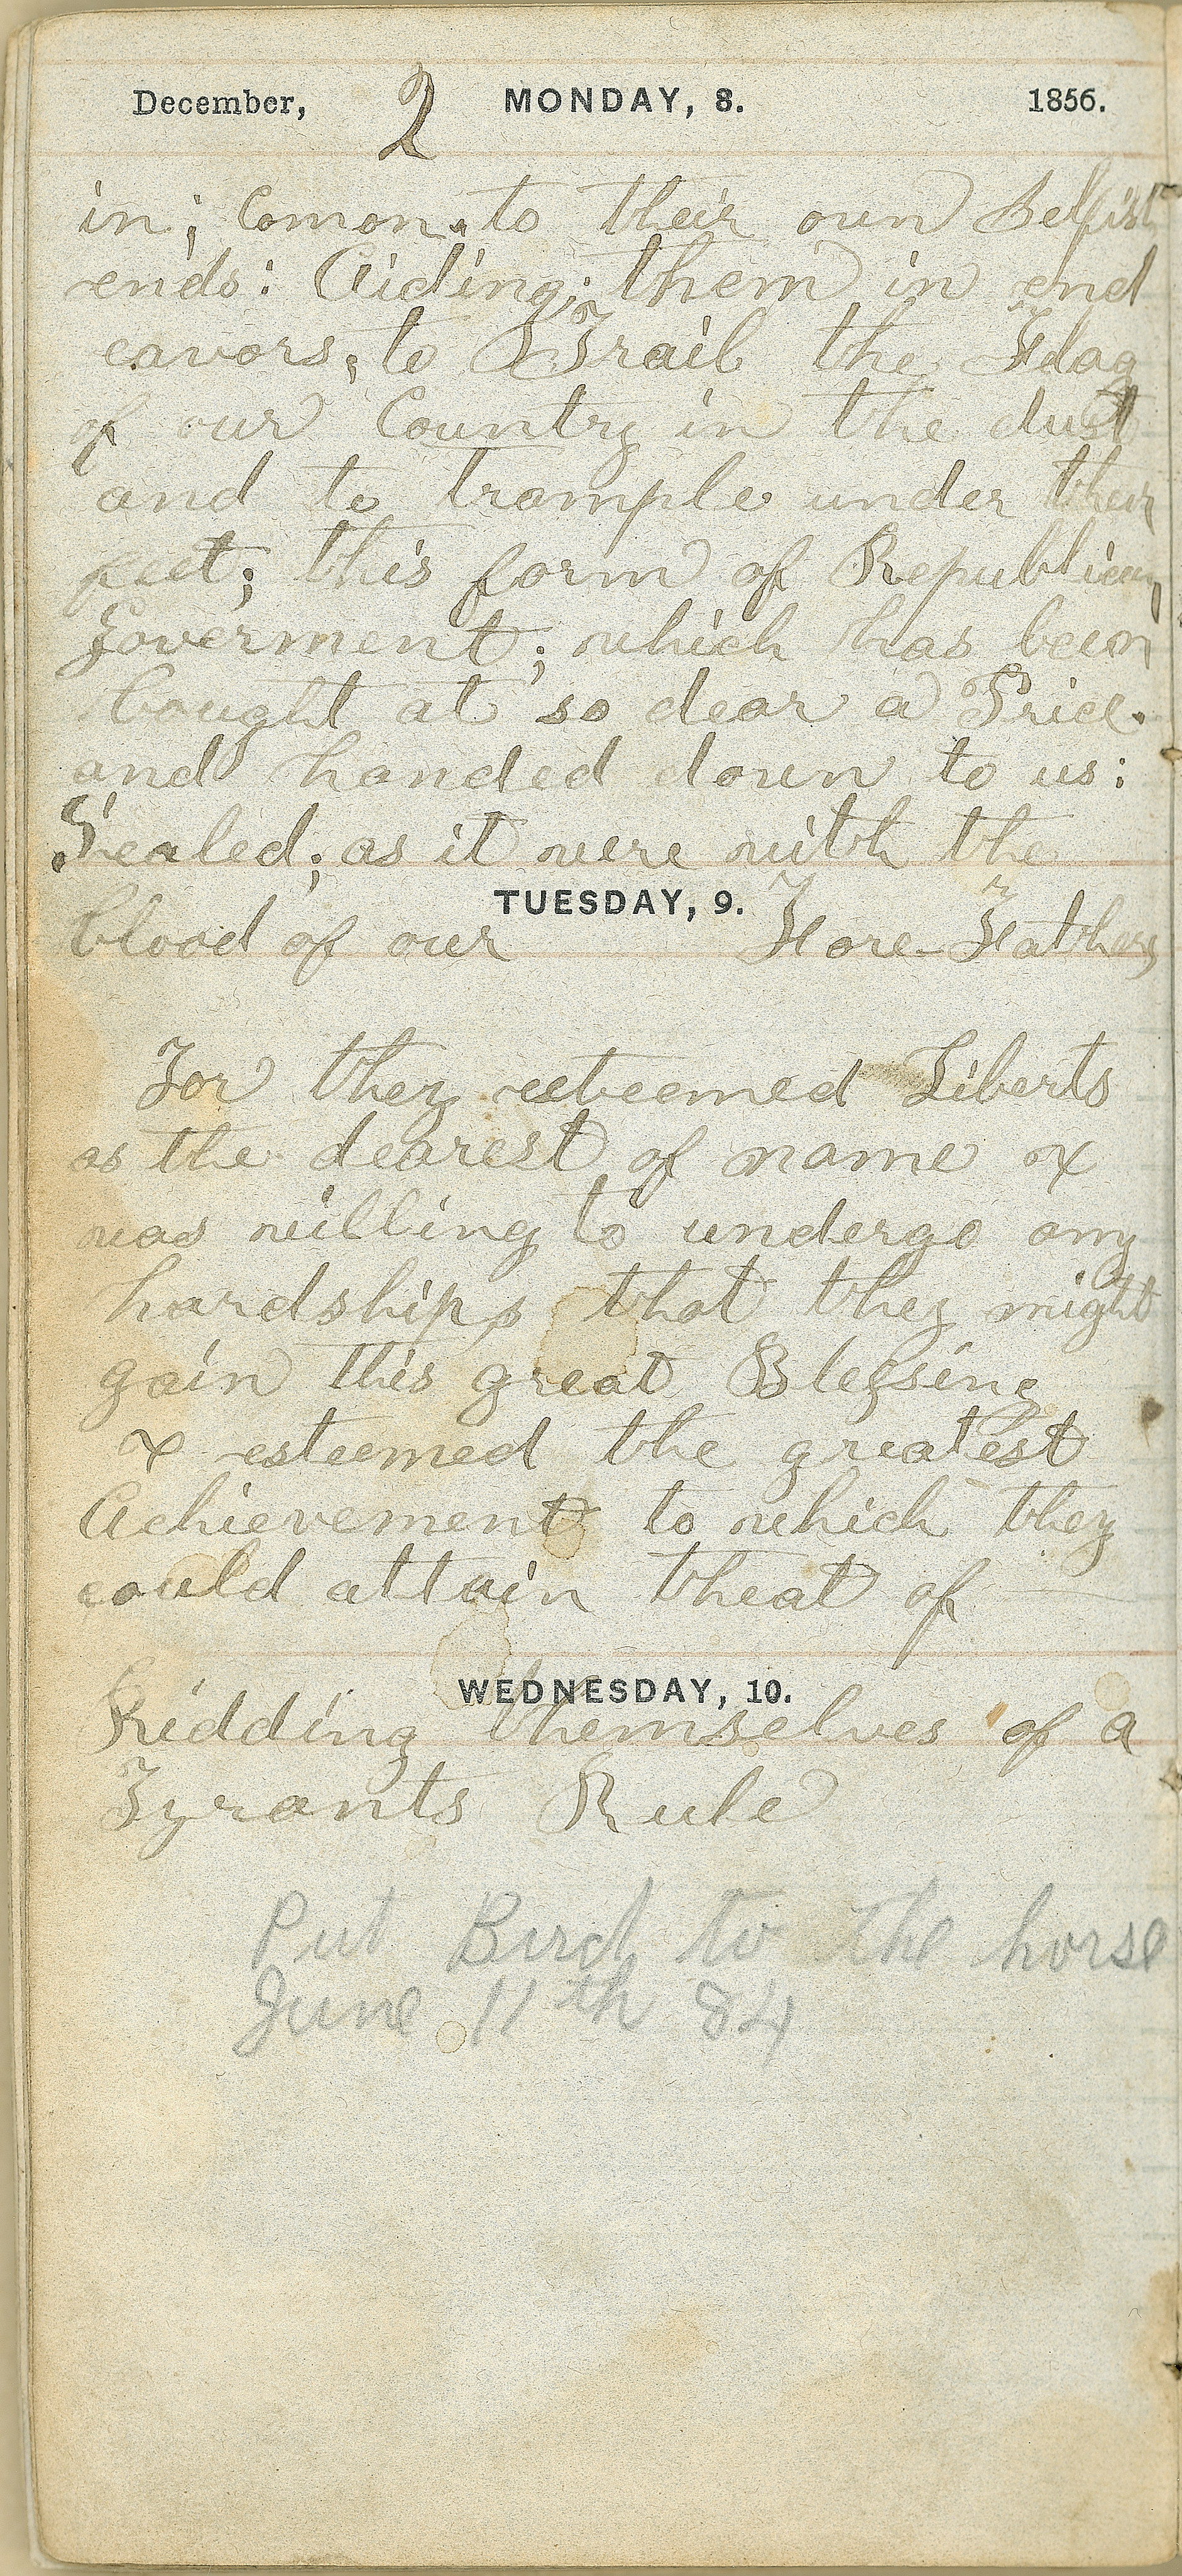 December, 2 MONDAY, 8. 1856.
in; Comon. to their own Selfish
ends: Aiding; them in end
eavors; to Trail the Flag
of our Country in the dust
and to trample under their
feet; this form of Republican
Goverment; which has been
bought at so dear a Price.
and handed down to us:
Sealed; as it were with the
TUESDAY, 9.
blood of our Fore-Fathers
For they esteemed Liberty
as the dearest of name &
was willing to undergo any
hardships that they might
gain this great Blessing
& esteemed the greatest
Achievement to which they
could attain theat of
WEDNESDAY, 10.
Ridding themselves of a
Tyrants Rule
Put Bird to the horse
June 11th 84